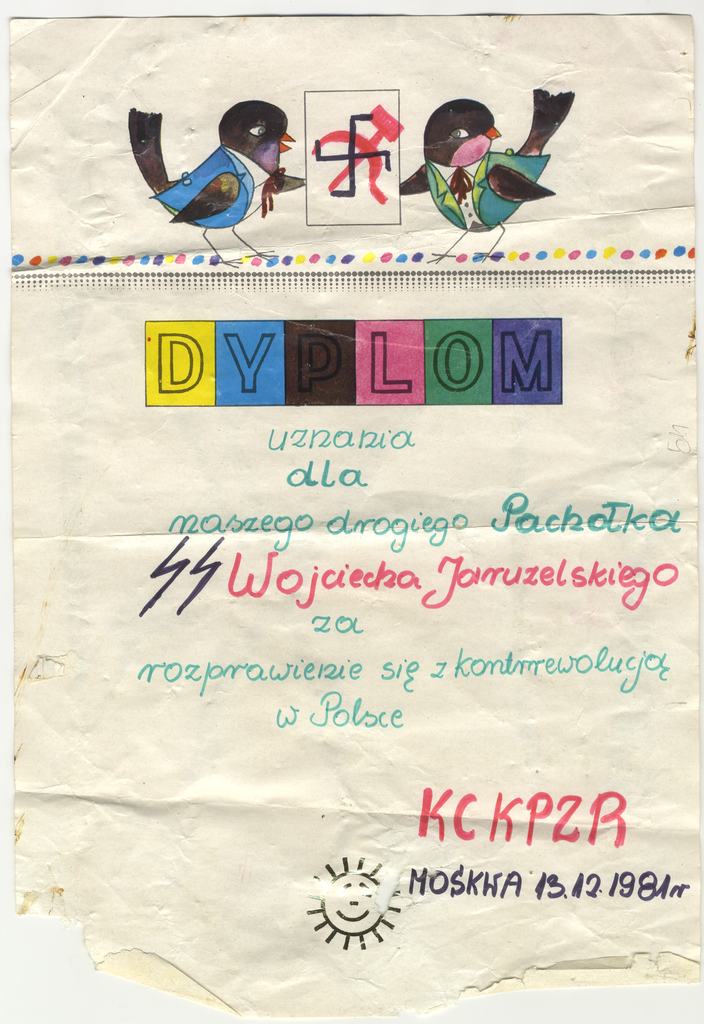 DYPLOM
uznania
dla
naszego drogiego Pachołka
SS Wojciecha Jaruzelskiego
za
rozprawienie się z kontrrewolucją
w Polsce
KC KPZR
MOSKWA 13.12.1981r